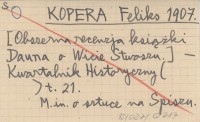 S
KOPERA Feliks 1907.
[Obszerna recenzja książki
Dauna o Wicie Stwoszu.] —
Kwartalnik Historyczny (
) t. 21.
M. in. o sztuce na Spiszu.